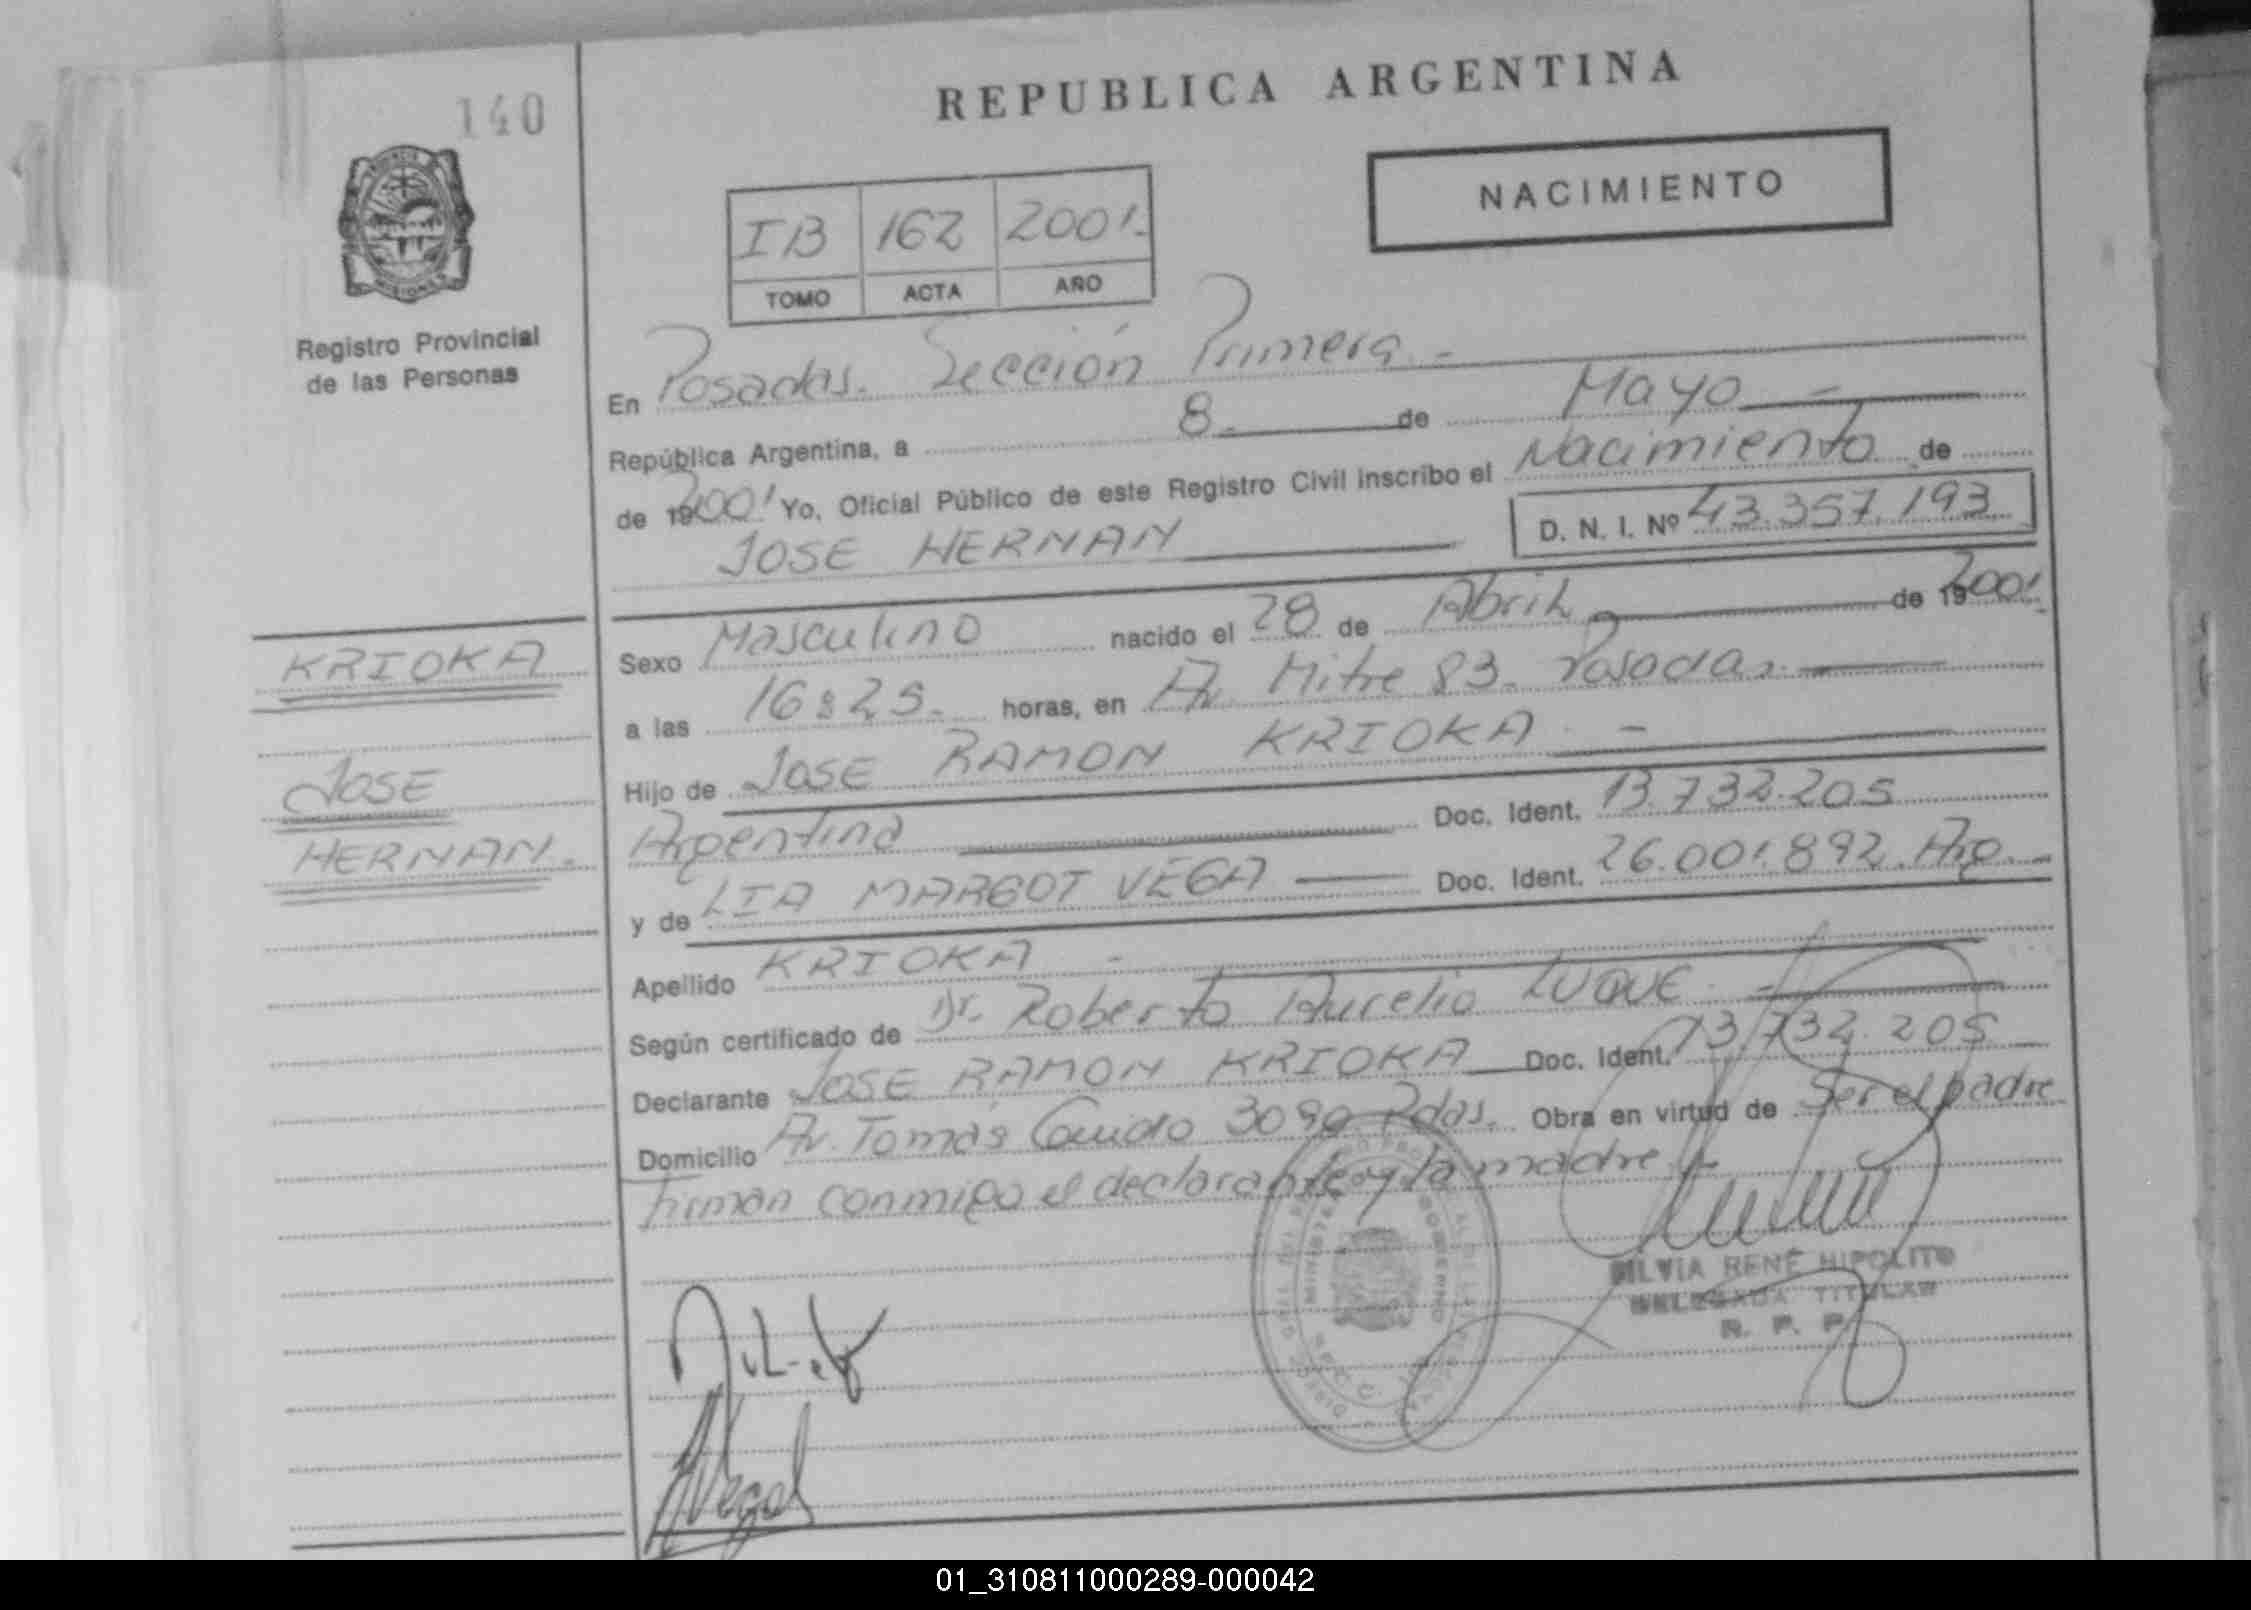 140
REPUBLICA ARGENTINA
NACIMIENTO
IB 162 2001.
TOMO ACTA AÑO
Registro Provincial
de las Personas
En Posadas. Sección Primera.-
República Argentina, a 8. de Mayo -
de 192001 Yo, Oficial Público de este Registro Civil inscribo el Nacimiento de
JOSE HERNAN D. N. I. Nº 43.357.193
KRIOKA
JOSE
HERNAN.
Sexo Masculino nacido el 28 de Abril de 192001.
a las 16:25. horas, en Av. Mitre 83. Posadas.
Hijo de JOSE RAMON KRIOKA. -
Argentina Doc. Ident. 13.732.205
y de LIA MARGOT VEGA Doc. Ident. 26.001.892. Arg.
Apellido KRIOKA -
Según certificado de Dr. Roberto Aurelio LUQUE. -
Declarante JOSE RAMON KRIOKA Doc. Ident. 13.732.205
Domicilio Av. Tomás Guido 3090 Pdas. Obra en virtud de Ser el padre
firman conmigo el declarante y la madre.-
SILVIA RENÉ HIPOLITO
DELEGADA TITULAR
R. P. P.
MINISTERIO GOBIERNO
01_310811000289-000042